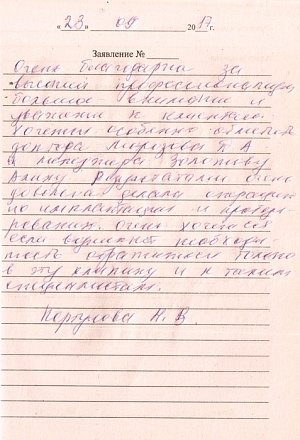 « 23 » 09 2017г.
Заявление №
Очень благодарна за
высокий профессионализм
большое внимание и
уважение к клиентам.
Хочется особенно отметить
доктора А.
и менеджера Золотову
Алину Результатами очень
довольна делала операцию
по имплантации и протези-
рованию. Очень хочется
если возникнет необходи-
мость обратиться только
в эту клинику и к таким
специалистам.
Н. В.